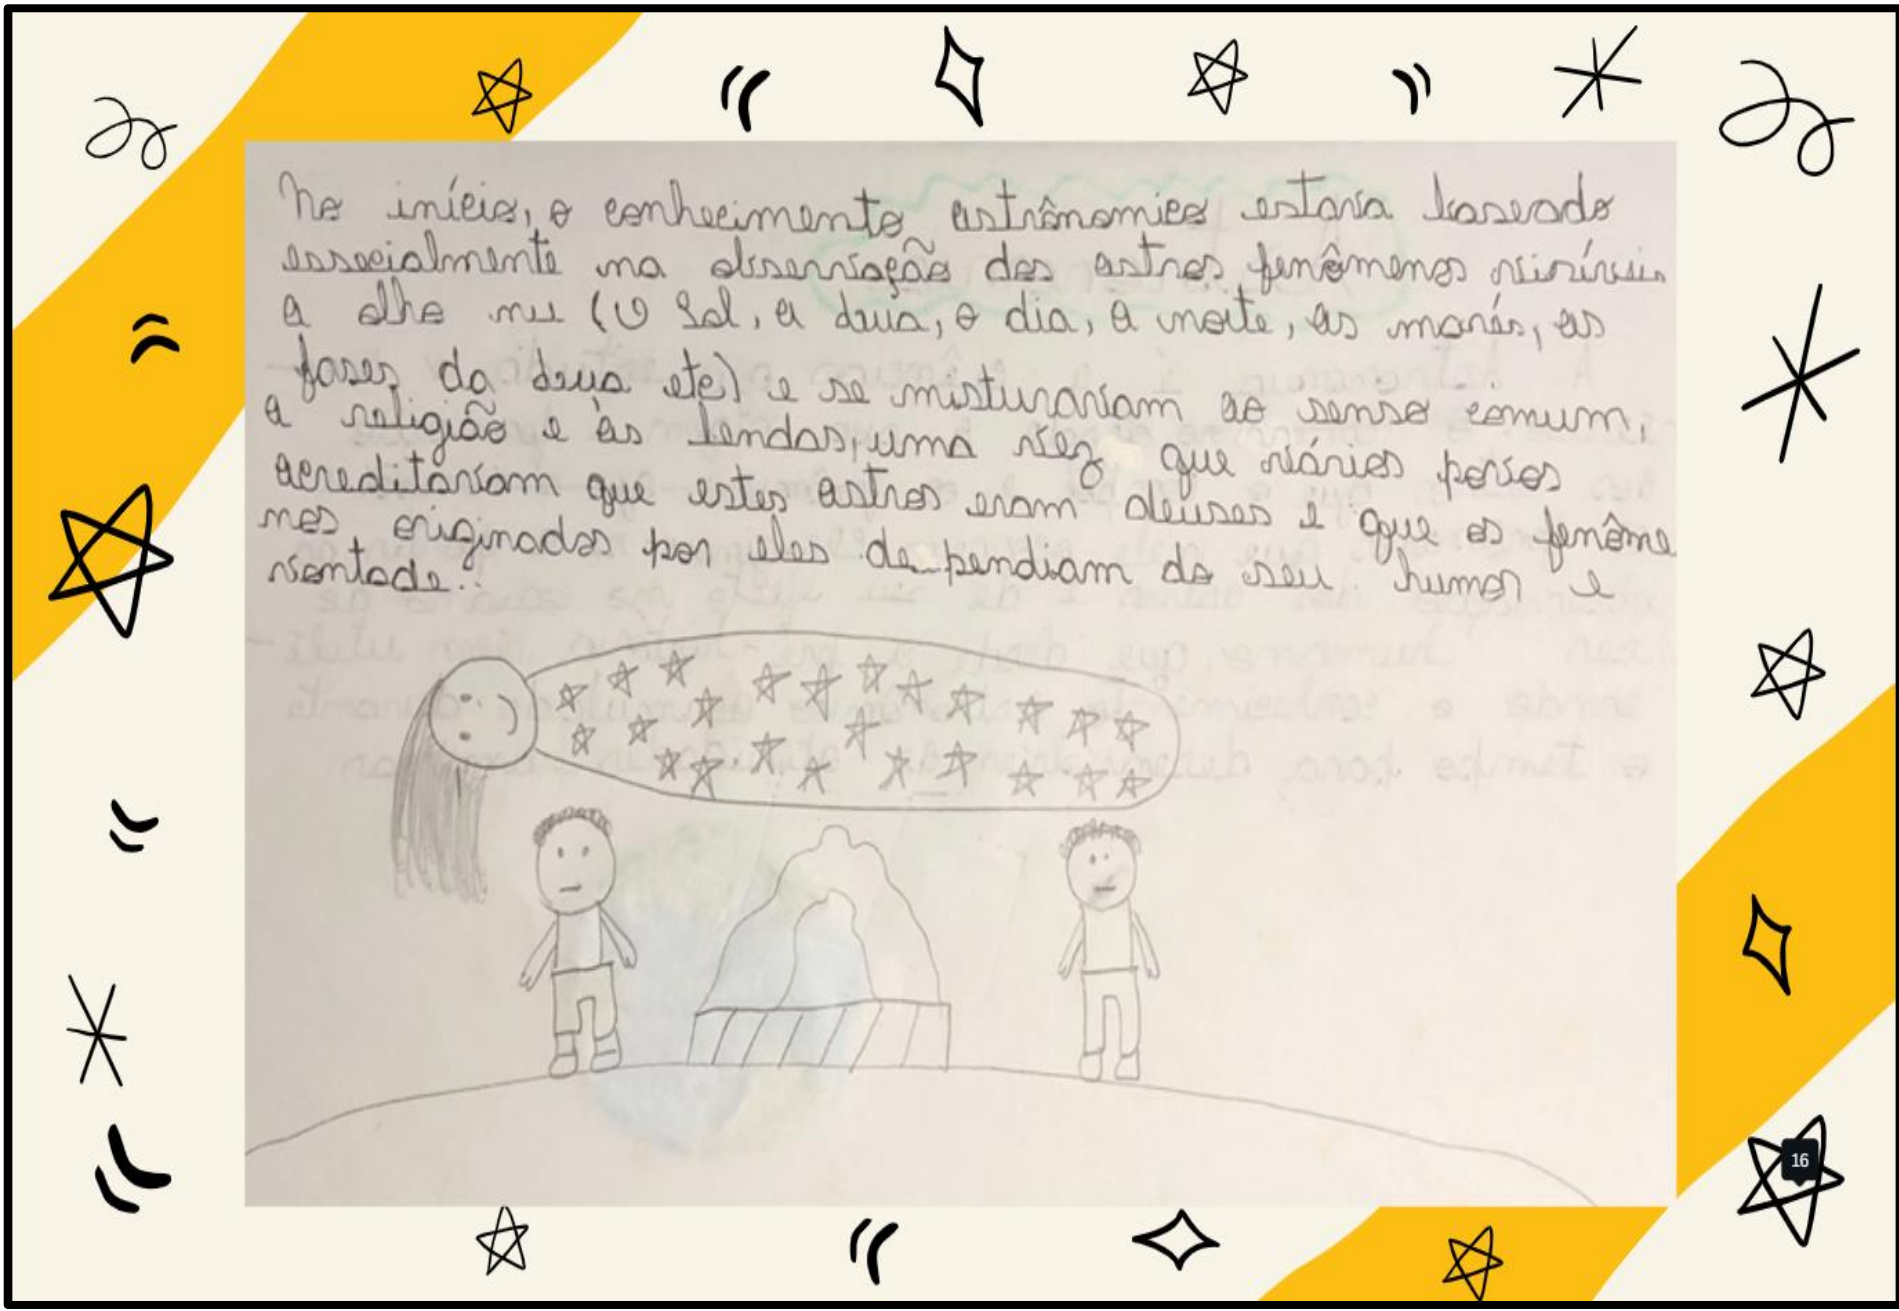 No início, o conhecimento astrônomico estava baseado
essecialmente na observação dos astros fenômenos visíveis
a olho nu (O Sol, a Lua, o dia, a noite, as marés, as
fases da Lua etc) e se misturavam ao senso comum,
a religião e às lendas, uma vez que vários povos
acreditavam que estes astros eram deuses e que os fenôme
nos originados por eles dependiam do seu humor e
vontade.
16